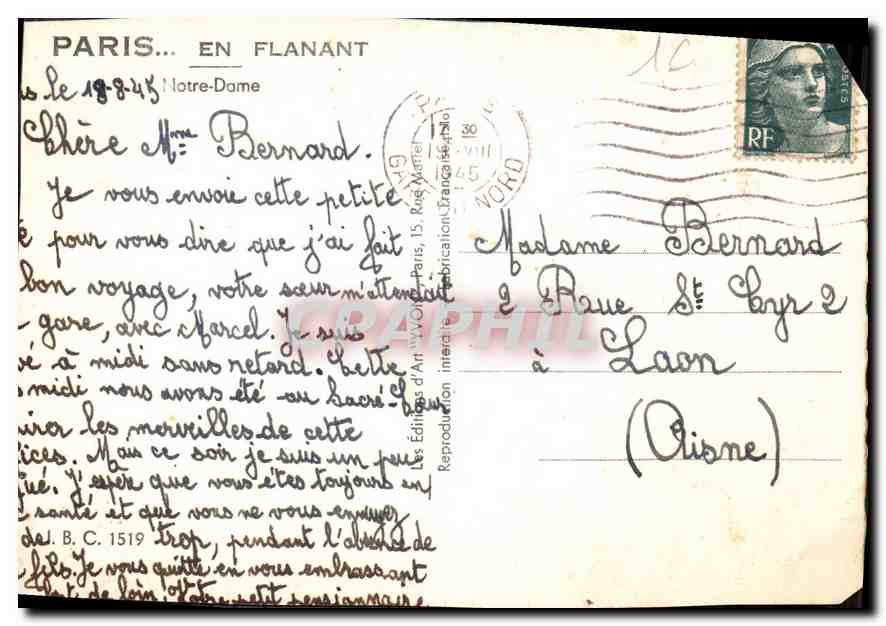 PARIS... EN FLANANT
le 18-8-45 Notre-Dame
Chère Mme Bernard.
Je vous envoie cette petite
pour vous dire que j'ai fait
bon voyage, votre sœur m'attendait
gare, avec Marcel. Je suis
à midi sans retard. Cette
midi nous avons été au Sacré-Cœur
les merveilles de cette
Mais ce soir je suis un peu
J'espère que vous êtes toujours en
santé et que vous ne vous ennuyez
de J. B. C. 1519 trop, pendant l'absence de
fils. Je vous quitte en vous embrassant
de loin. Votre petit pensionnaire
Les Éditions d'Art "YVON", Paris, 15, Rue Martel
Reproduction interdite Fabrication Française
1C
POSTES
RF
17 30
VIII
1945
GARE NORD
Madame Bernard
2 Rue St Cyr 2
à Laon
(Aisne)
CPAPHIL